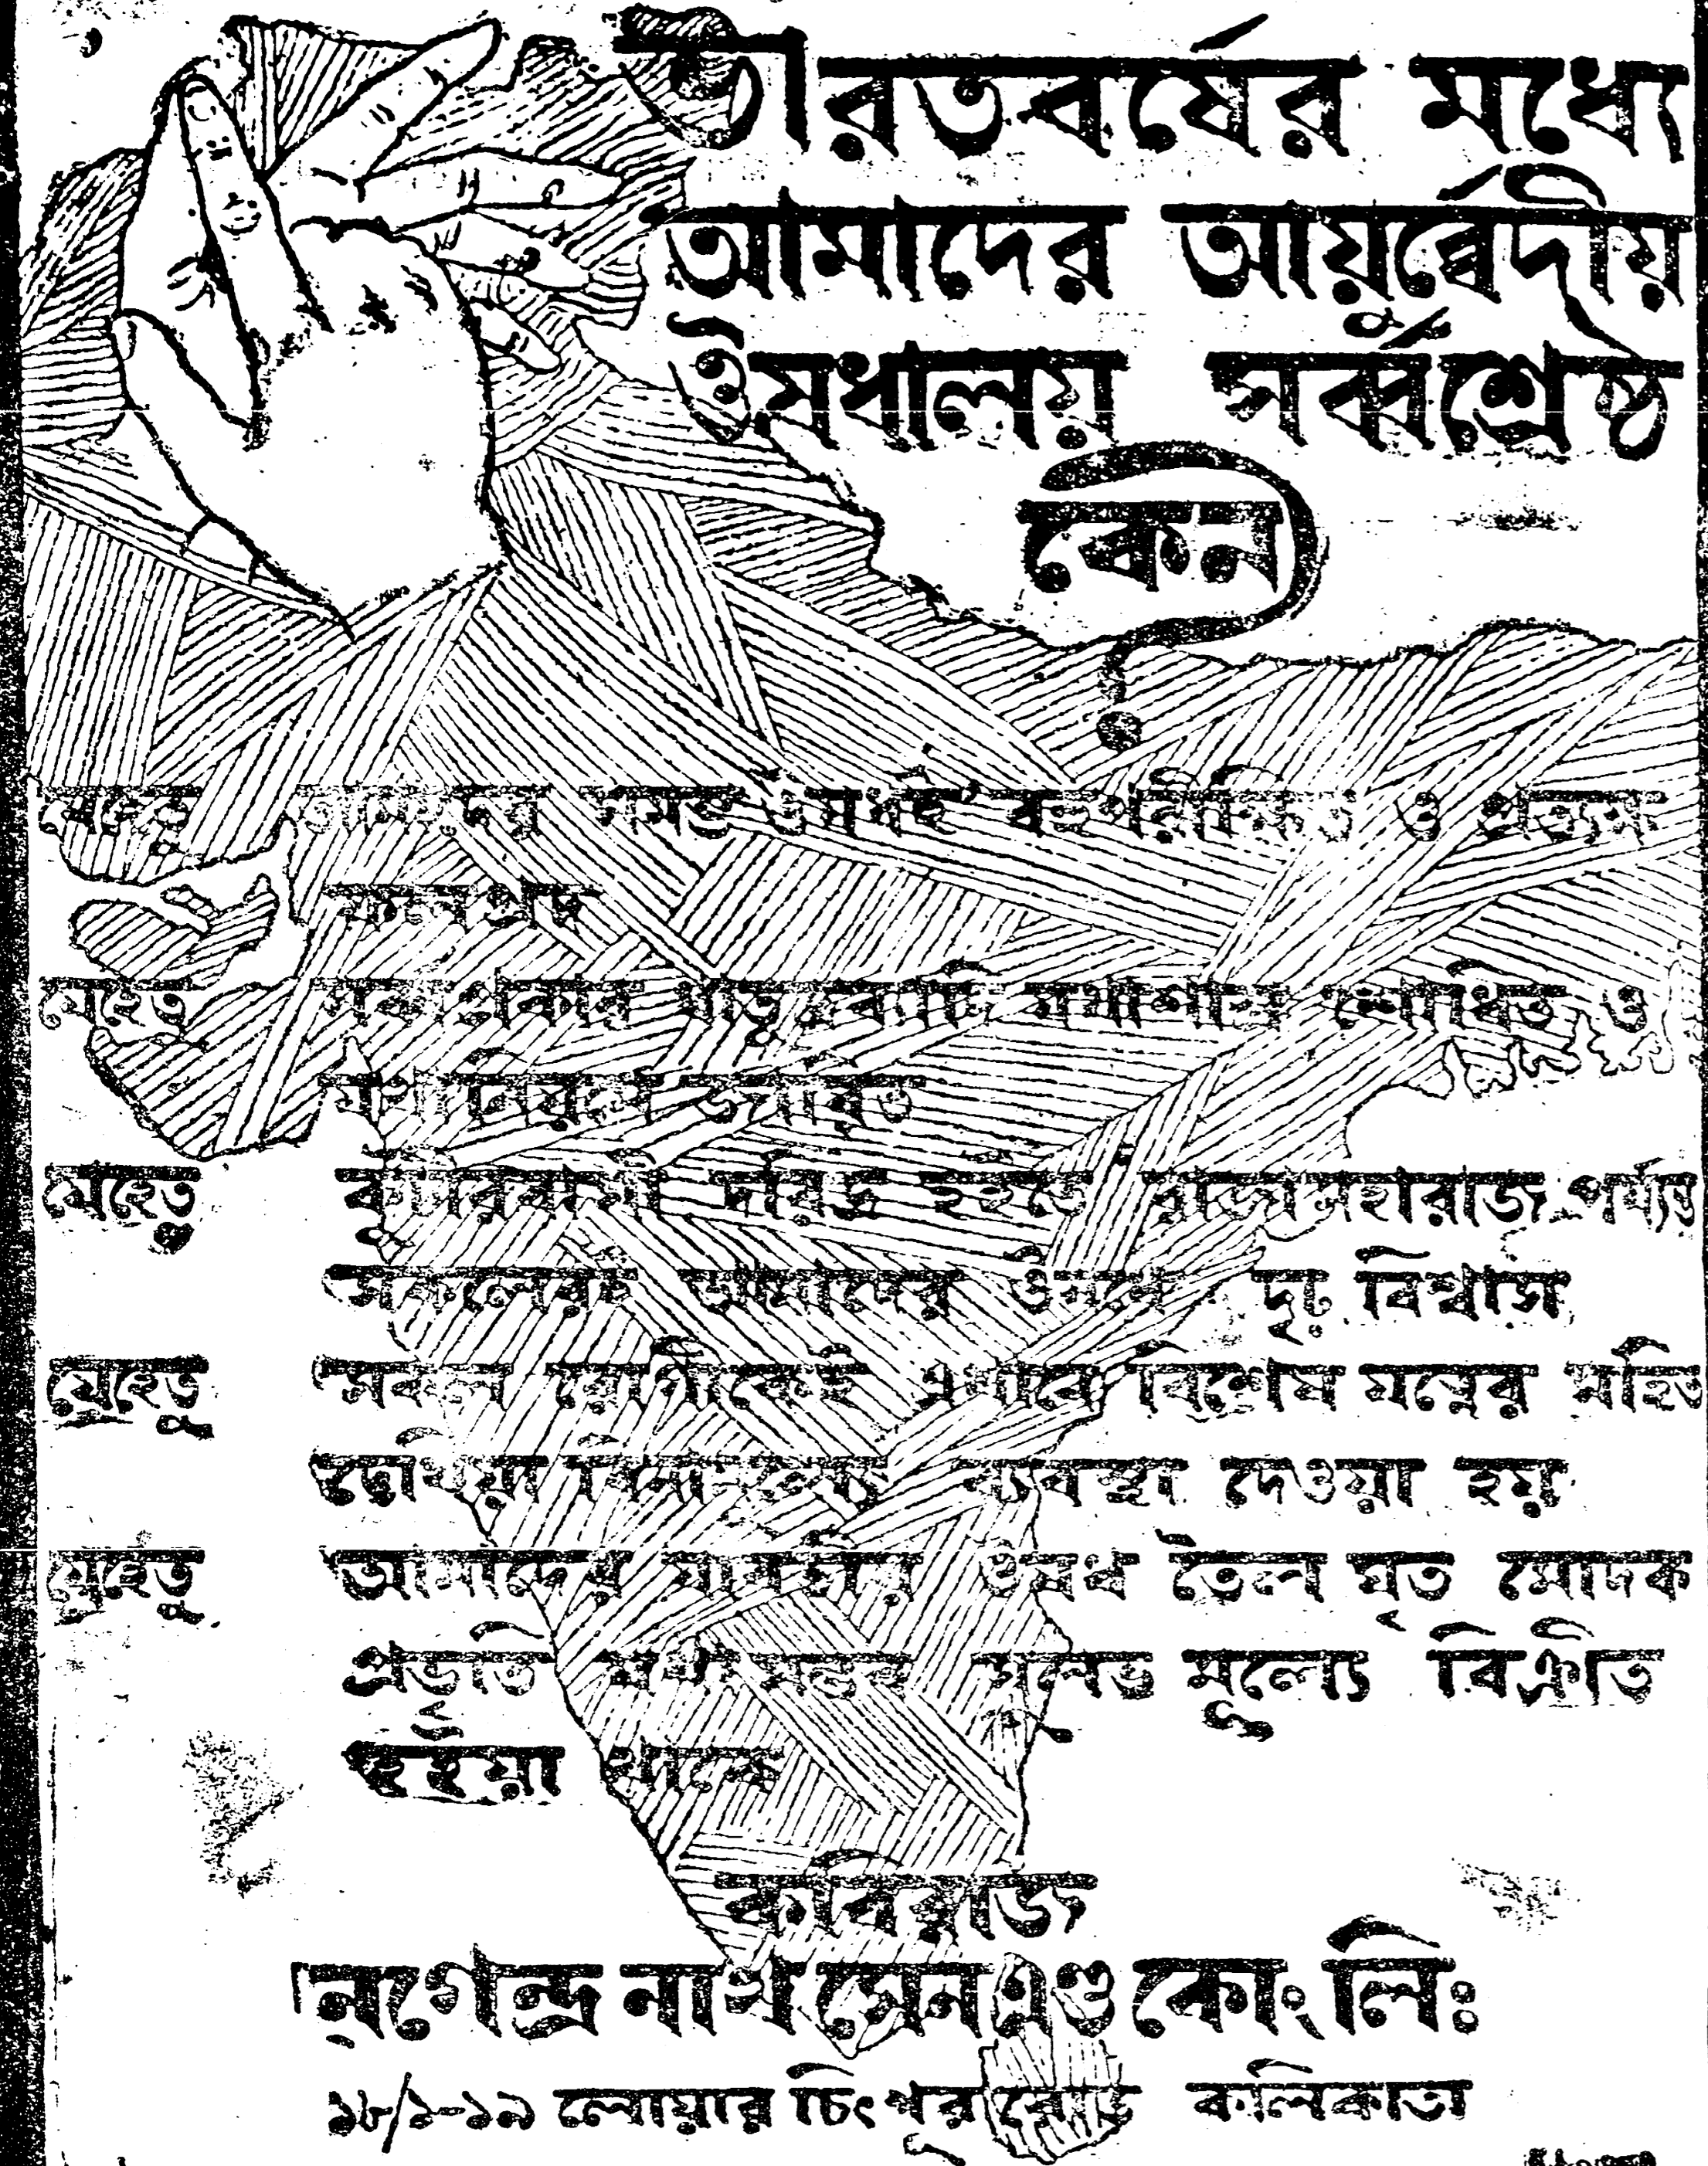 ভারতবর্ষের মধ্যে
আমাদের আয়ুর্ব্বেদীয়
ঔষধালয় সর্ব্বশ্রেষ্ঠ
কেন?
যেহেতু আমাদের সমস্ত ঔষধই বহুপরীক্ষিত ও প্রত্যক্ষ
ফলপ্রদ
যেহেতু ধাতুদ্রব্যাদি যথাশাস্ত্র শোধিত ও
জারিত
যেহেতু কুটীরবাসী দরিদ্র হইতে রাজামহারাজ পর্য্যন্ত
সকলেরই আমাদের ঔষধে দৃঢ় বিশ্বাস
যেহেতু সকল রোগীকেই এখানে বিশেষ যত্নের সহিত
দেখিয়া বিনামূল্যে ব্যবস্থা দেওয়া হয়
যেহেতু আমাদের যাবতীয় ঔষধ তৈল ঘৃত মোদক
প্রভৃতি যথাসম্ভব সুলভ মূল্যে বিক্রীত
হইয়া থাকে
কবিরাজ
নগেন্দ্র নাথ সেন এণ্ড কোং লিঃ
১৮/১-১৯ লোয়ার চিৎপুর রোড কলিকাতা